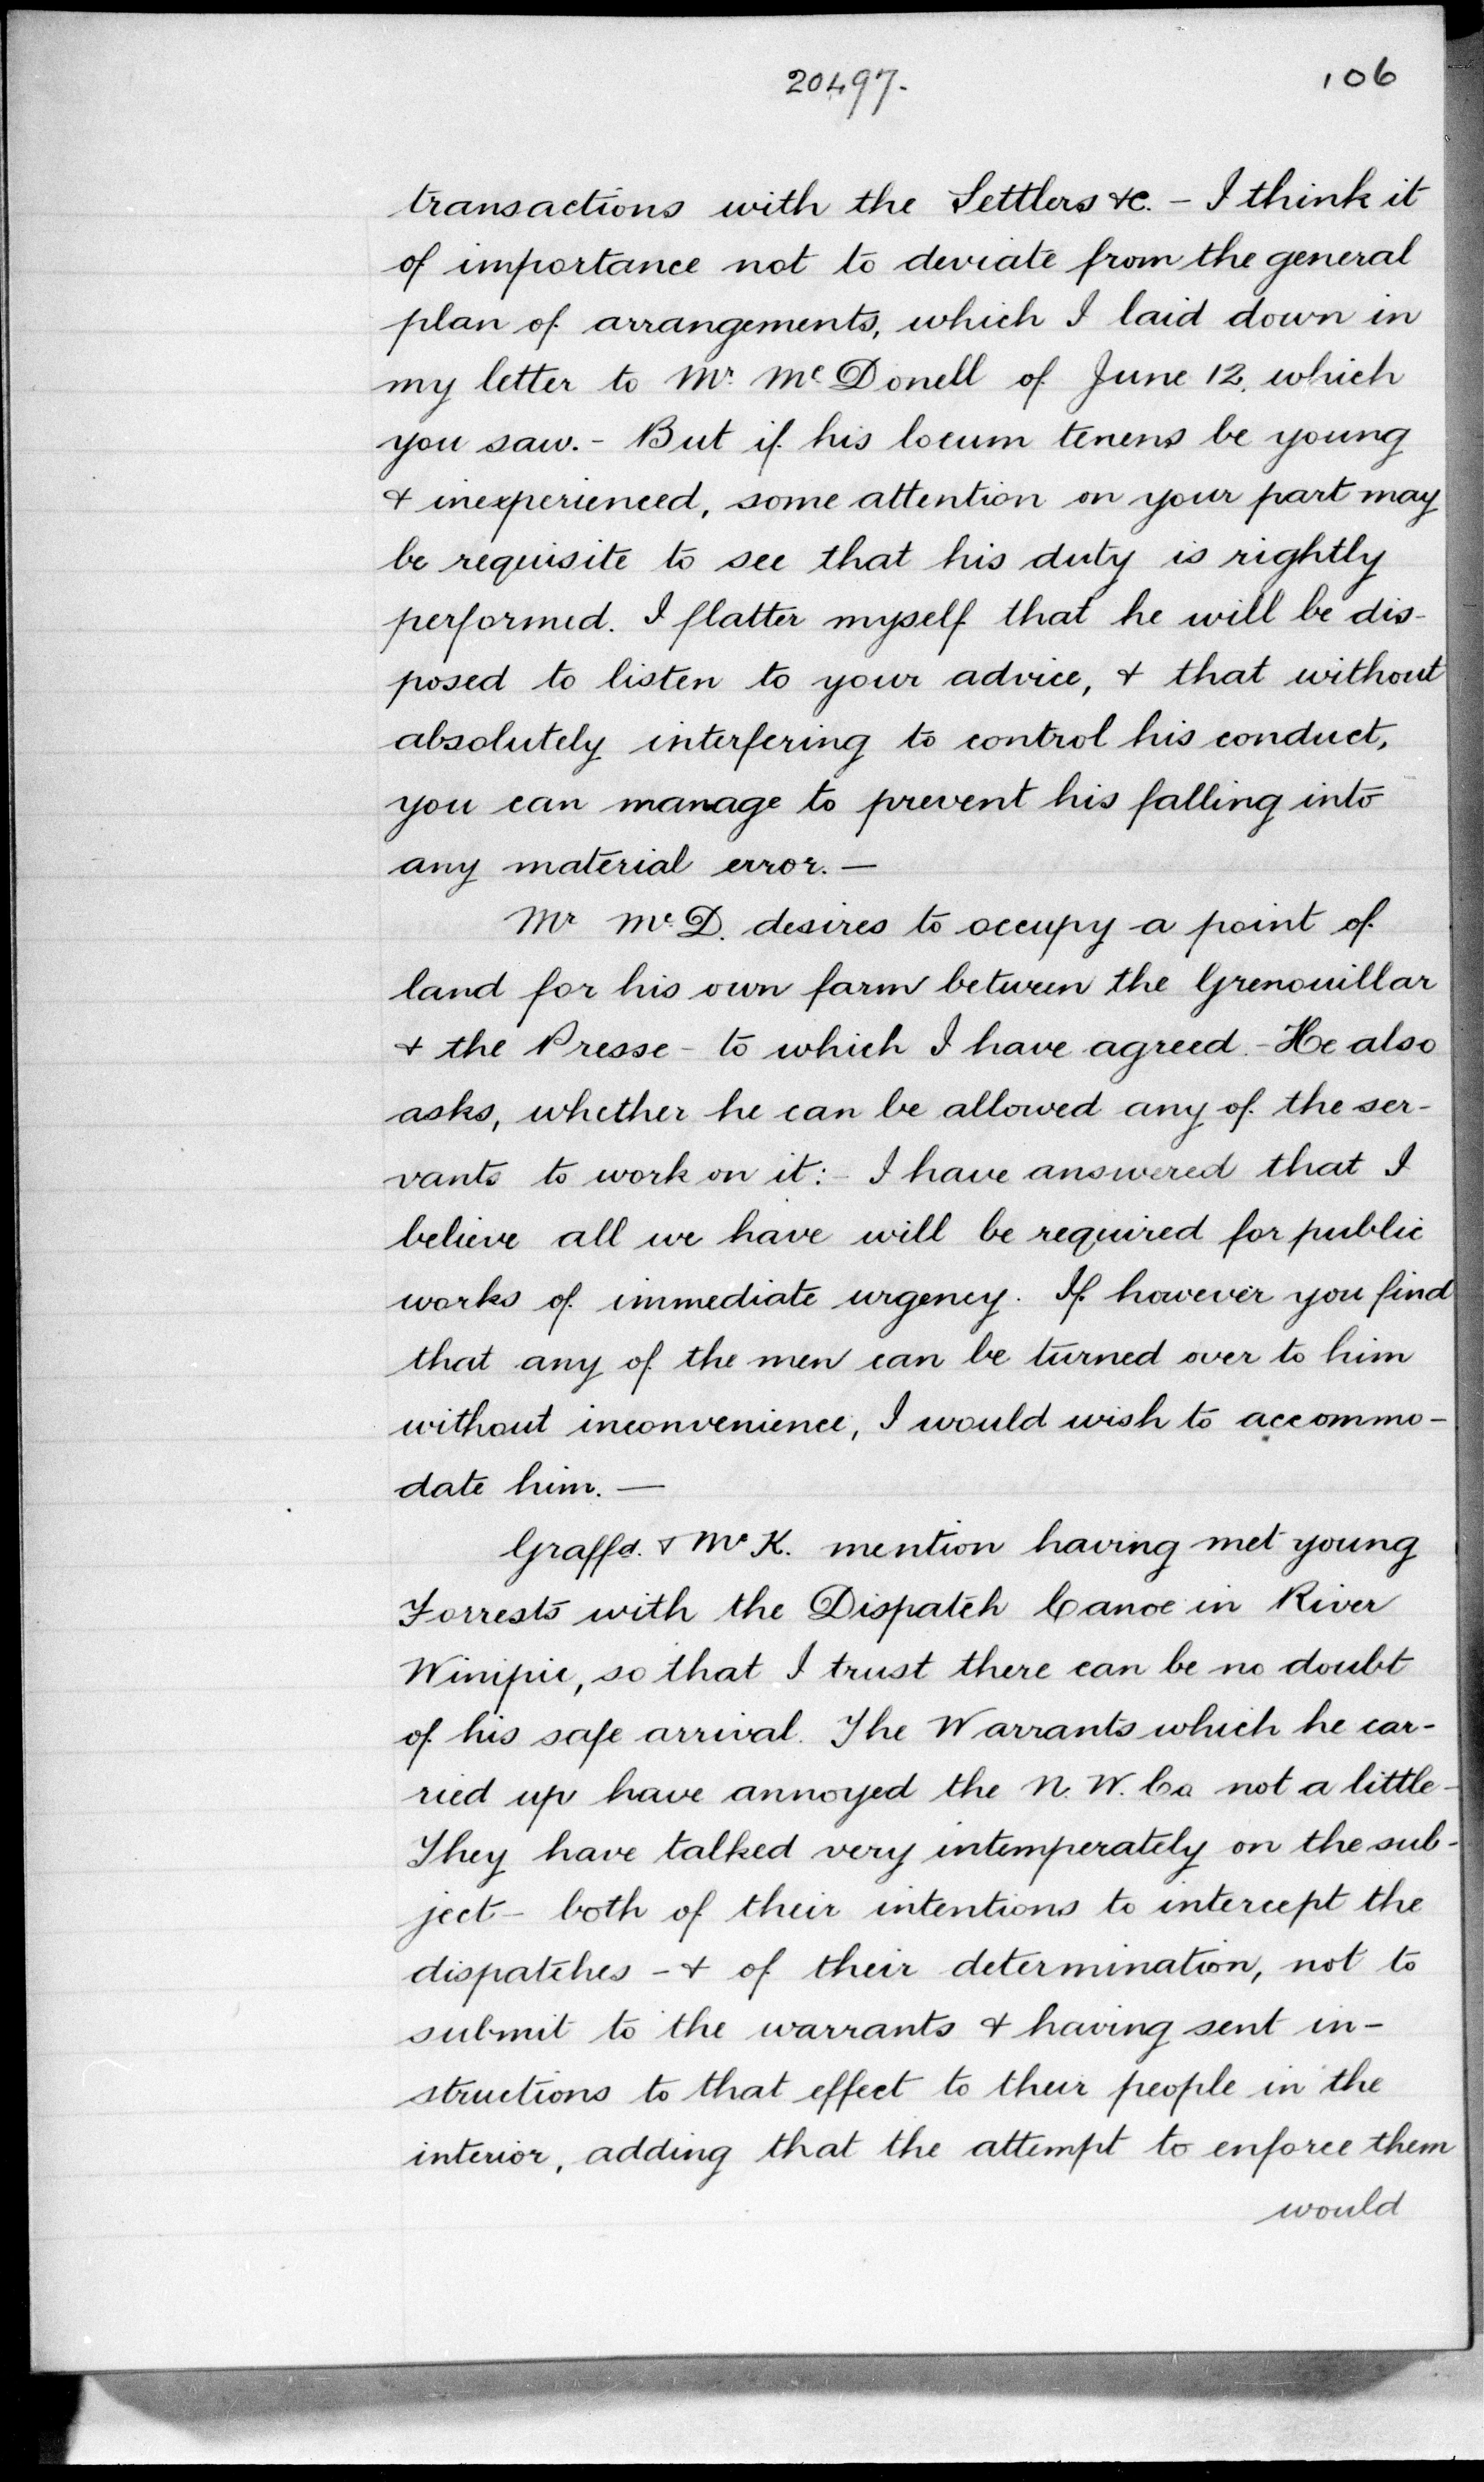 20497.
106
transactions with the Settlers &c. - I think it
of importance not to deviate from the general
plan of arrangements, which I laid down in
my letter to Mr. McDonell of June 12, which
you saw. - But if his locum tenens be young
& inexperienced, some attention on your part may
be requisite to see that his duty is rightly
performed. I flatter myself that he will be dis-
posed to listen to your advice, & that without
absolutely interfering to control his conduct,
you can manage to prevent his falling into
any material error. —
Mr McD. desires to occupy a point of
land for his own farm between the Grenouillar
& the Presse - to which I have agreed. - He also
asks, whether he can be allowed any of the ser-
vants to work on it: - I have answered that I
believe all we have will be required for public
works of immediate urgency. If however you find
that any of the men can be turned over to him
without inconvenience, I would wish to accommo-
date him. —
Graffd. & McK. mention having met young
Forrests with the Dispatch Canoe in River
Winipic, so that I trust there can be no doubt
of his safe arrival. The Warrants which he car-
ried up have annoyed the N. W. Co not a little -
They have talked very intemperately on the sub-
ject - both of their intentions to intercept the
dispatches - & of their determination, not to
submit to the warrants & having sent in-
structions to that effect to their people in the
interior, adding that the attempt to enforce them
would